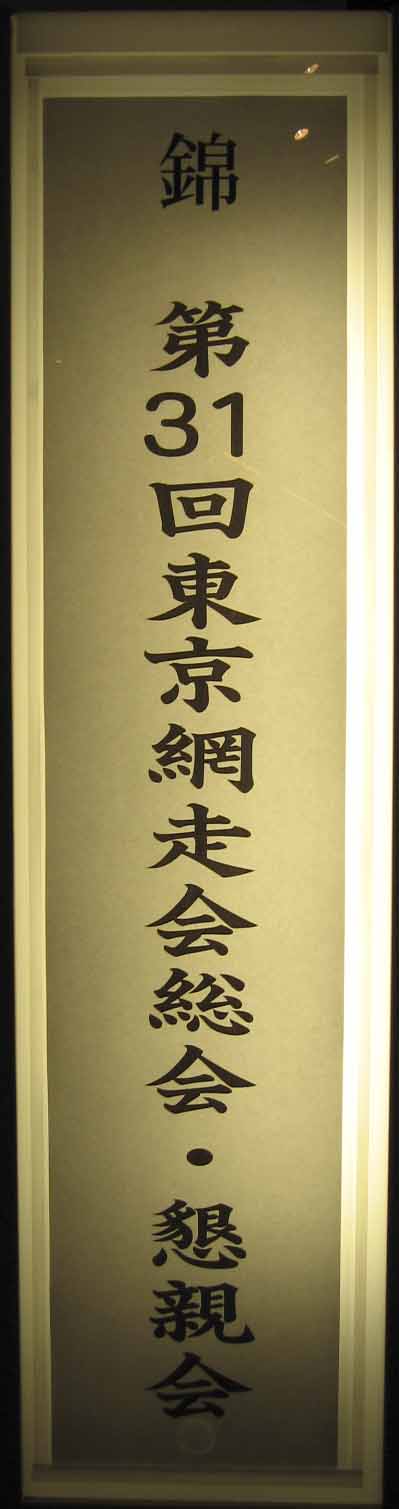 錦　第31回東京網走会総会・懇親会